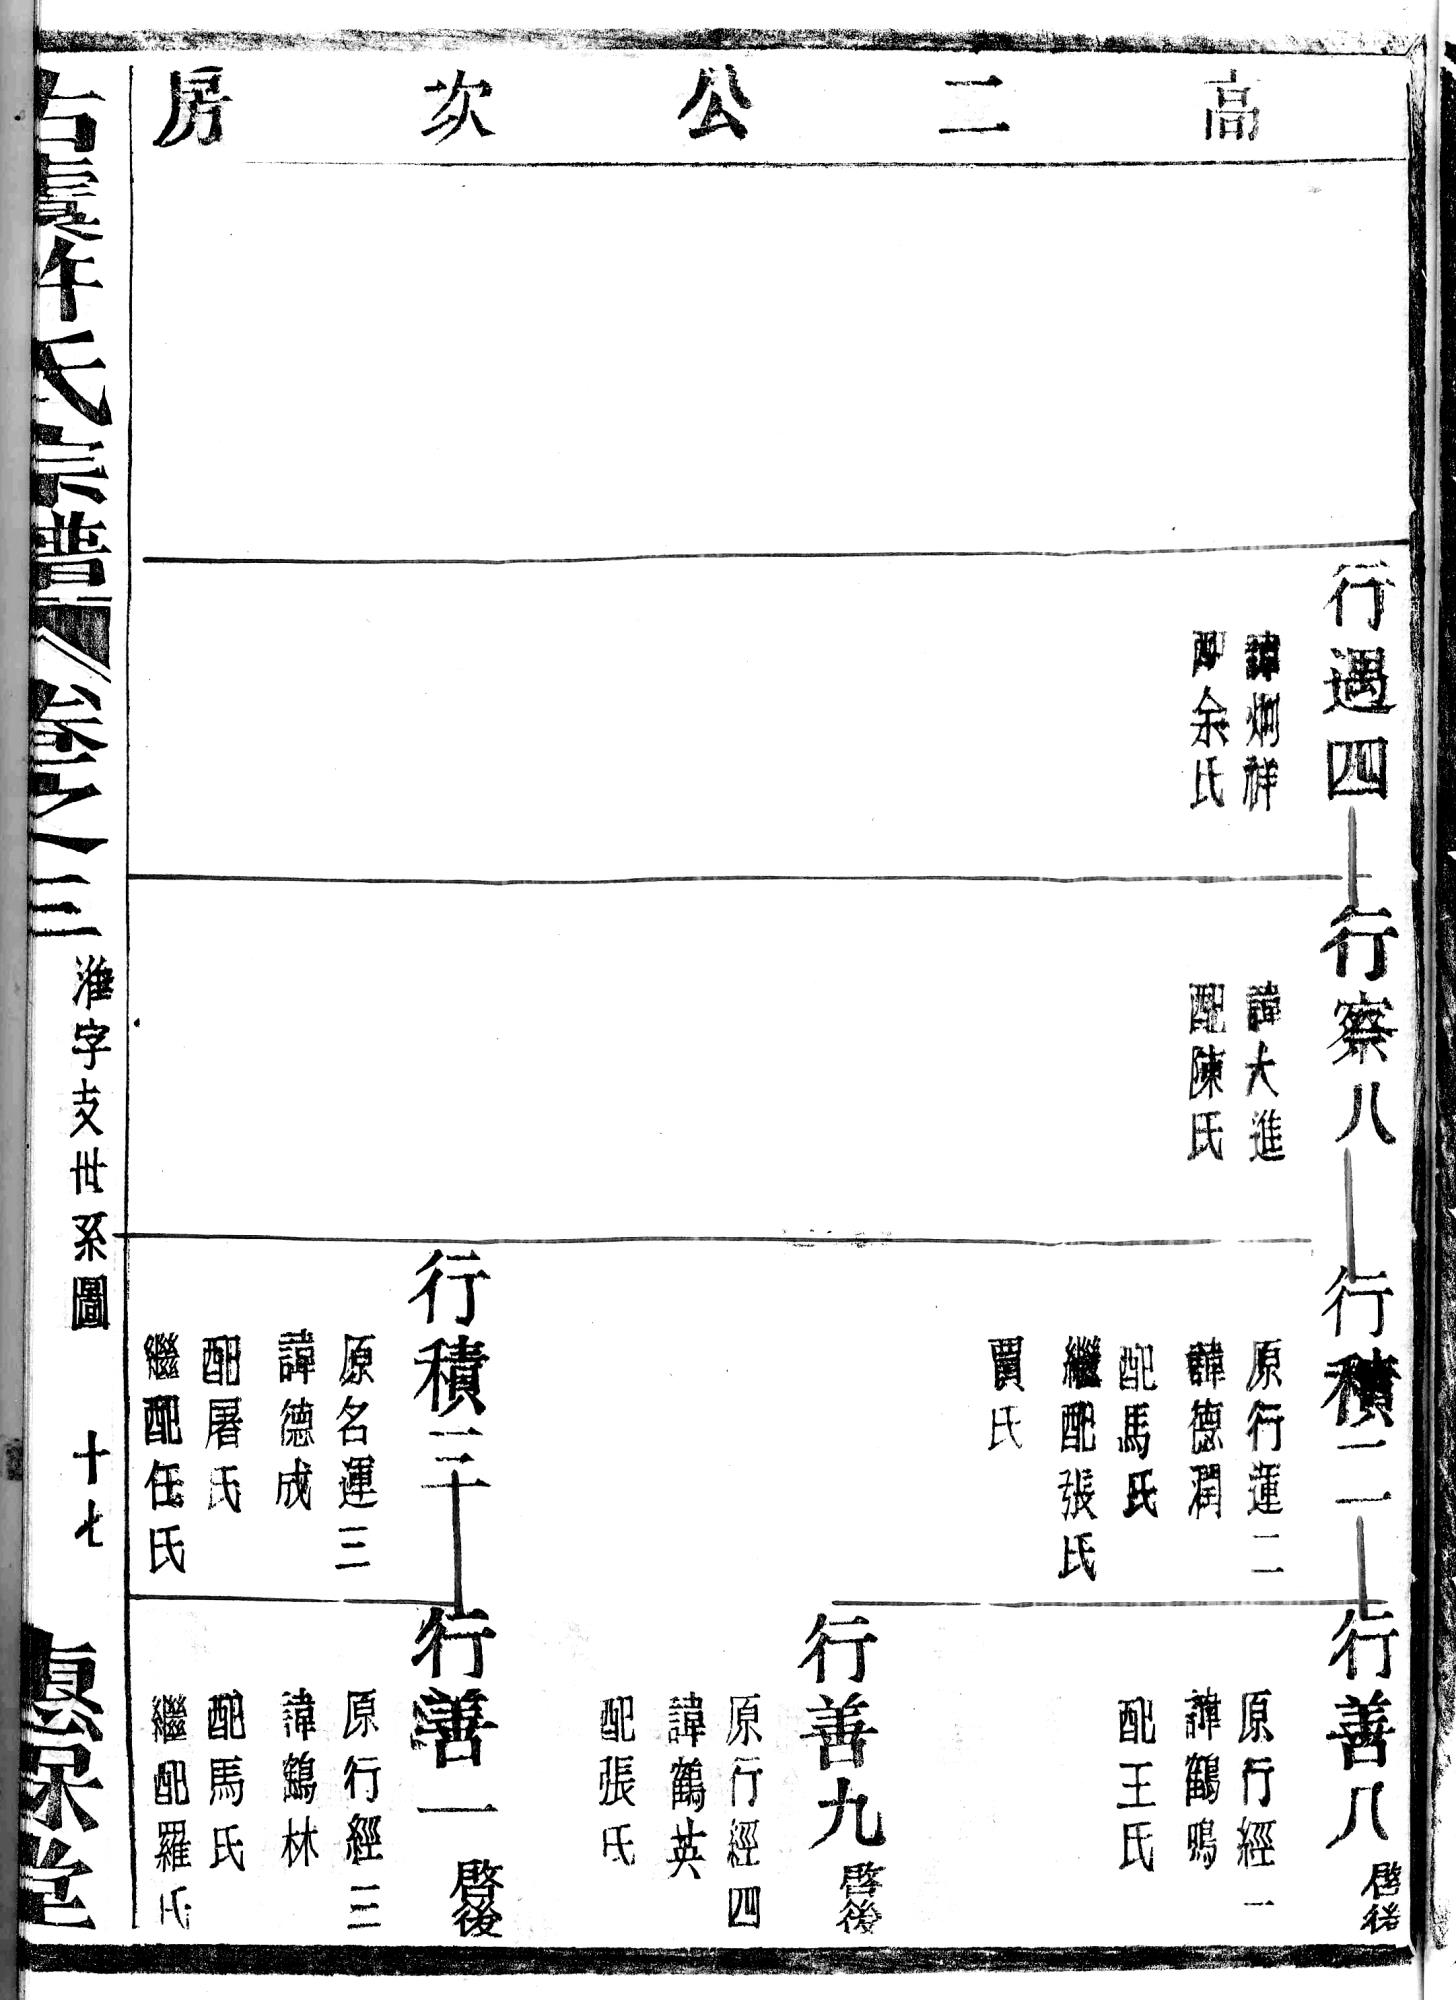 高二公次房
行遇四
諱炯祥
配余氏
行察八
諱大進
配陳氏
行積二一
原行運二
諱德潤
配馬氏
繼配張氏
賈氏
行積三十
原名運三
諱德成
配屠氏
繼配任氏
行善八
啓後
原行經一
諱鶴鳴
配王氏
行善九
啓後
原行經四
諱鶴英
配張氏
行善一
啓後
原行經三
諱鶴林
配馬氏
繼配羅氏
古虞許氏宗譜
卷之三
淮字支世系圖
十七
堂